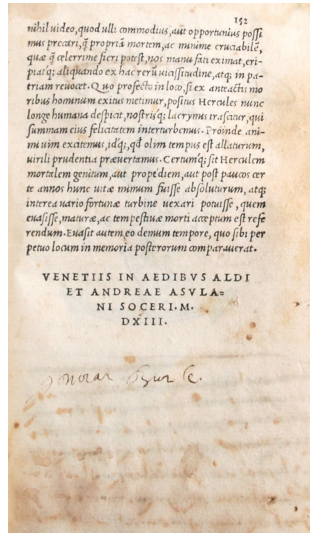 152
nihil video, quod ulli commodius, aut opportunius possi
mus precari, q̃ propriã mortem, ac minime cruciabilẽ,
quæ q̃ celerrime fieri potest, nos manu fati eximat, eri-
piatq; aliquando ex hac rerũ vicissitudine, atq; in pa-
triam revocet. Quo profecto in loco, si ex anteactis mo
ribus hominum exitus metimur, positus Hercules nunc
longe humana despicit, nostrisq; lacrymis irascitur, qui
summam eius felicitatem interturbemus. Proinde ani-
mi uim excitemus, idq;, qđ olim tempus est allaturum,
uirili prudentia præuertamus. Certumq; sit Herculem
mortalem genitum, aut propediem, aut post paucos cer
te annos hunc uitæ mimum fuisse absoluturum, atq;
interea uario fortunæ turbine uexari potuisse, quem
euasisse, maturæ, ac tempestiuæ morti acceptum est refe
rendum. Euasit autem eo demum tempore, quo sibi per
petuo locum in memoria posterorum comparauerat.
VENETIIS IN AEDIBVS ALDI
ET ANDREAE ASVLA=
NI SOCERI. M.
DXIII.